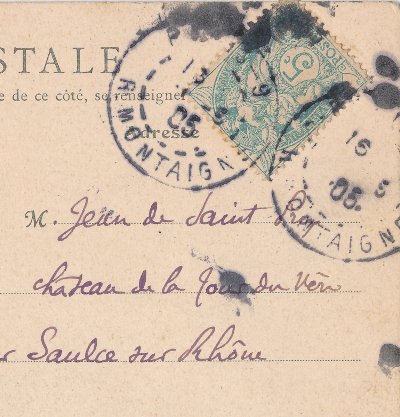 STALE
e de ce côté, se renseigner
Adresse
R. MONTAIGNE
05
5
16
05
MONTAIGNE
M. Jean de Saint Prix
chateau de la Tour du Vern
Saulce sur Rhône